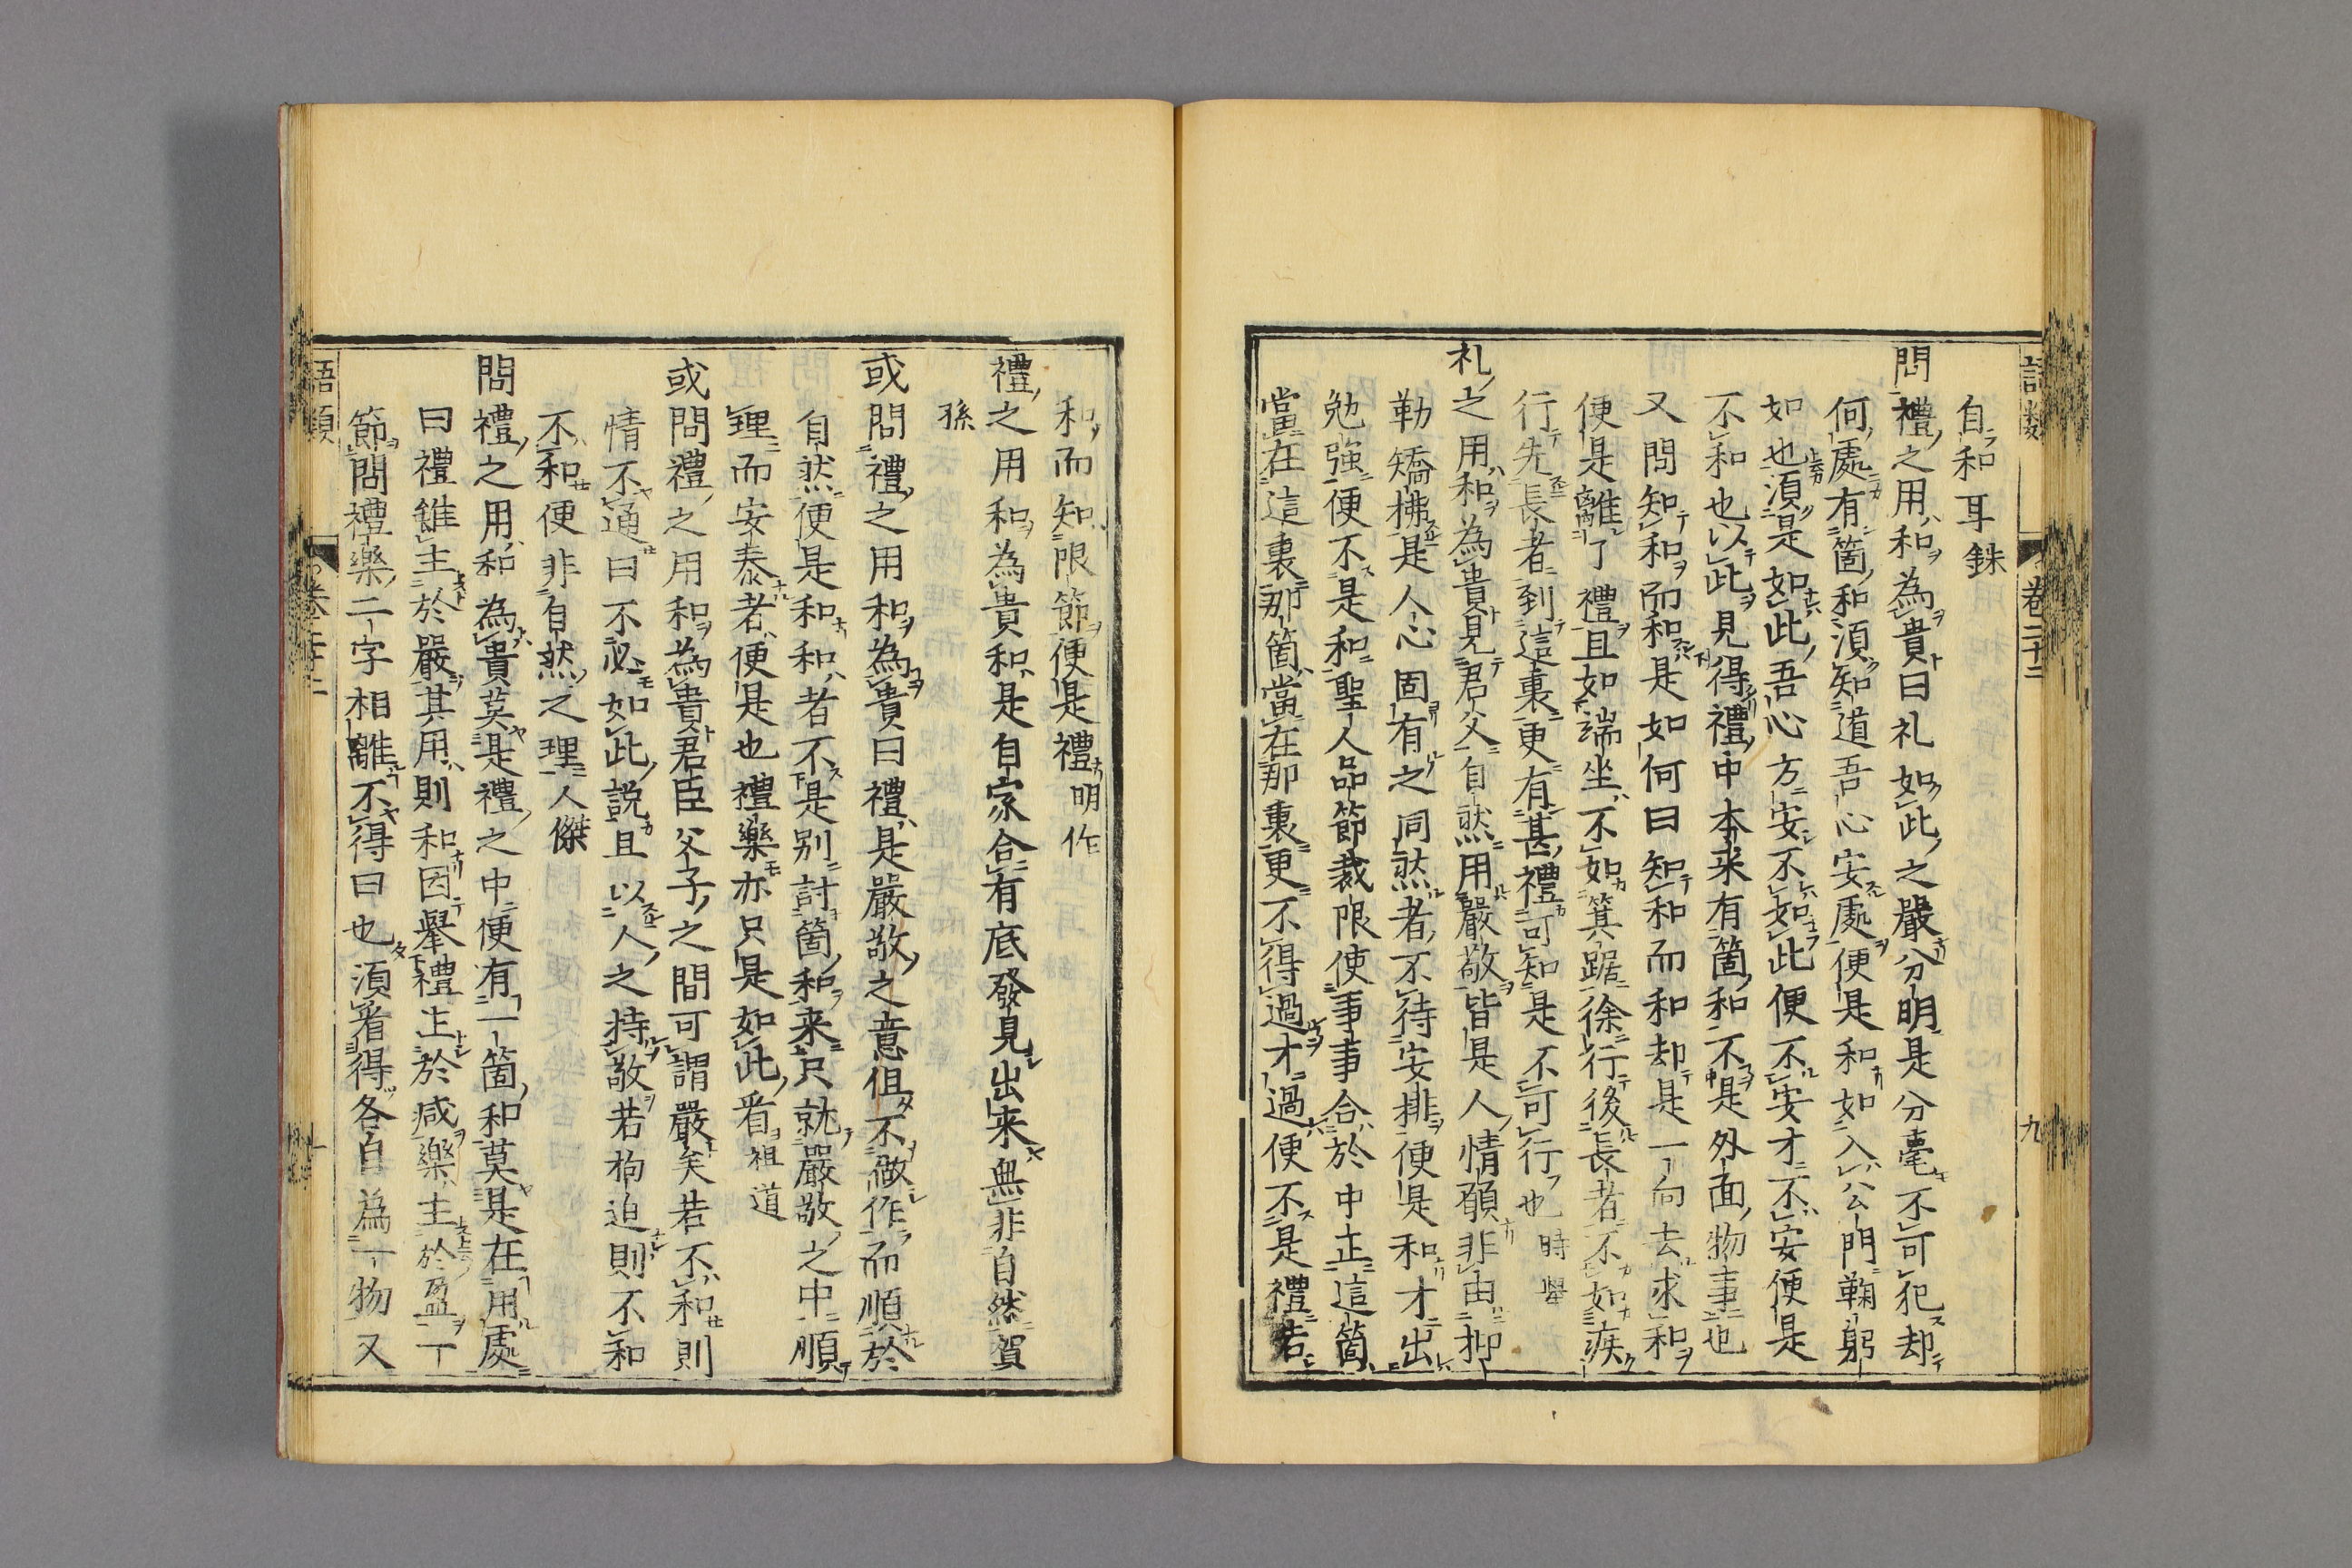 語類
卷二十二
九
自和耳銖
問禮之用和為貴曰礼如此之嚴分明是分毫不可犯却
何處有箇和須知道吾心安處便是和如入公門鞠躬
如也須是如此吾心方安不如此便不安才不安便是
不和也以此見得禮中本来有箇和不是外面物事也
又問知和而和是如何曰知和而和却是一向去求和
便是離了禮且如端坐不如箕踞徐行後長者不如疾
行先長者到這裏更有甚禮可知是不可行也時舉
礼之用和為貴見君父自然用嚴敬皆是人情願非由抑
勒矯拂是人心固有之同然者不待安排便是和才出
勉強便不是和聖人品節裁限使事事合於中正這箇
當在這裏那箇當在那裏更不得過才過便不是禮若
和而知限節便是禮明作
禮之用和為貴和是自家合有底發見出来無非自然賀
孫
或問禮之用和為貴曰禮是嚴敬之意但不做作而順於
自然便是和和者不是别討箇和来只就嚴敬之中順
理而安泰者便是也禮樂亦只是如此看祖道
或問禮之用和為貴君臣父子之間可謂嚴矣若不和則
情不通曰不必如此說且以人之持敬若拘迫則不和
不和便非自然之理人傑
問禮之用和為貴莫是禮之中便有一箇和莫是在用處
曰禮雖主於嚴其用則和因舉禮主於減樂主於盈一
節問禮樂二字相離不得曰也須看得各自為一物又
語類
卷二十二
十